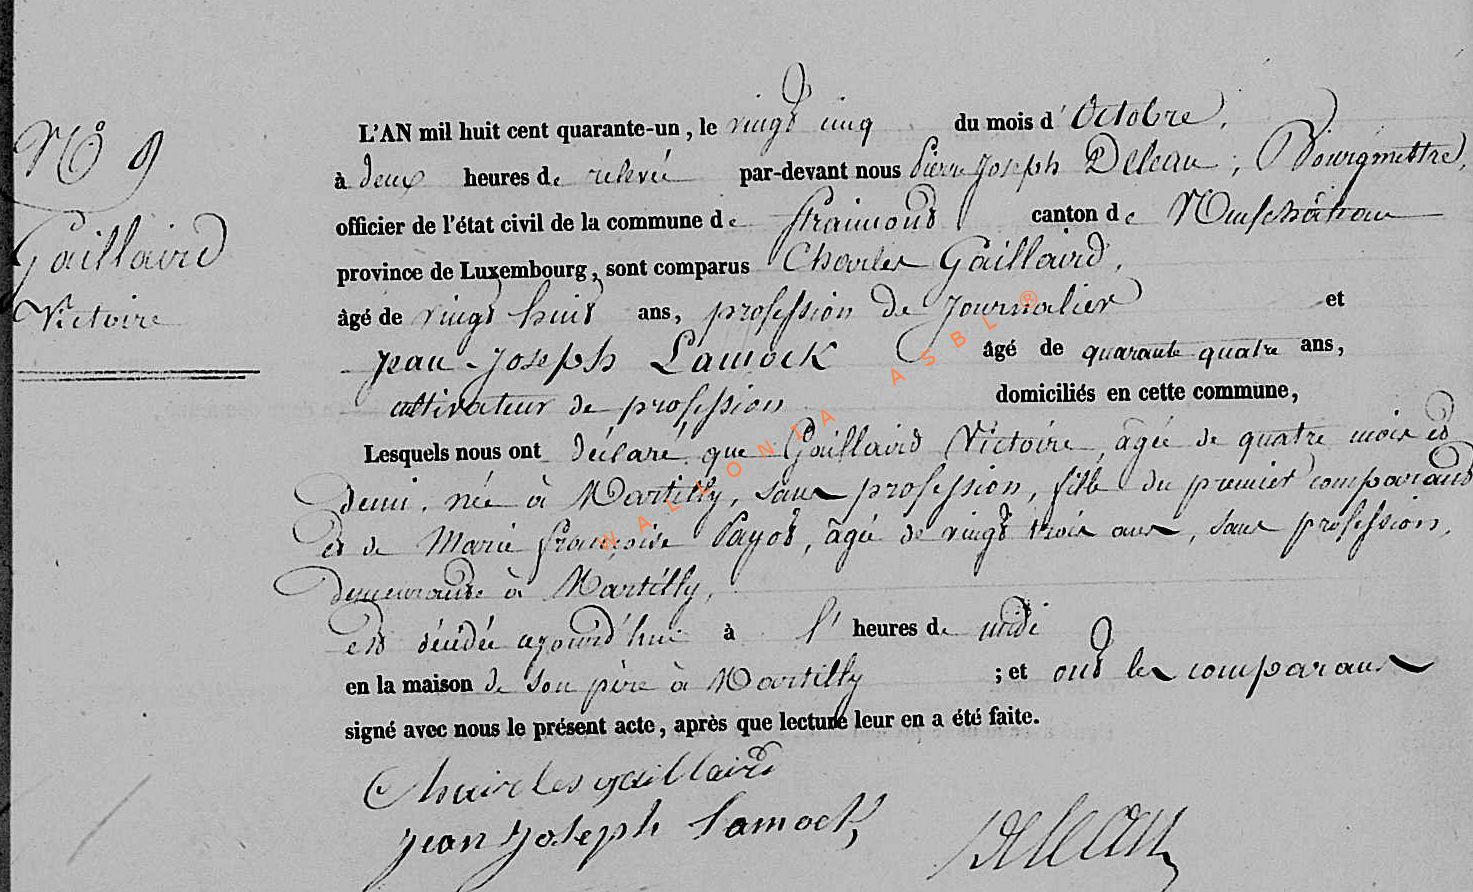 N° 9
Gaillaird
Victoire
L'AN mil huit cent quarante-un, le vingt cinq du mois d'Octobre,
à deux heures de relevée par-devant nous Pierre Joseph Deleau, Bourgmettre,
officier de l'état civil de la commune de Straimont canton de Neufchâteau
province de Luxembourg, sont comparus Charles Gaillaird,
âgé de vingt huit ans, profession de Journalier et
jean Joseph Lamock âgé de quarante quatre ans,
cultivateur de profession domiciliés en cette commune,
Lesquels nous ont déclaré que Gaillaird Victoire, âgée de quatre mois et
demi, née à Martilly, sans profession, fille du premier comparant
et de Marie françoise Payot, âgée de vingt trois ans, sans profession,
demeurante à Martilly,
est décédée ajourd'hui à l' heures de midi
en la maison de son père à Martilly ; et ont les comparans
signé avec nous le présent acte, après que lecture leur en a été faite.
Chairles gaillaird
jean Joseph lamock
Deleau
WALLONIA ASBL ®